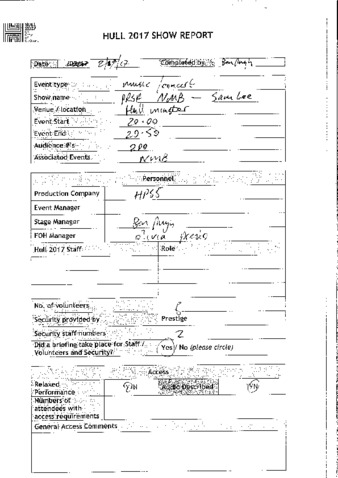 HULL 2017 SHOW REPORT
Date: 2/9/17 Completed by:
Event type music / concert
Show name PRSF NMB - Sam Lee
Venue / location Hull minster
Event Start 20.00
Event End 20.50
Audience #'s 200
Associated Events NMB
Personnel
Production Company
Event Manager
Stage Manager Ben
FOH Manager Olivia
Hull 2017 Staff Role
No. of volunteers
Security provided by Prestige
Security staff numbers 2
Did a briefing take place for Staff / Yes / No (please circle)
Volunteers and Security?
Access
Relaxed Y/N Audio Described Y/N
Performance
Numbers of
attendees with
access requirements
General Access Comments